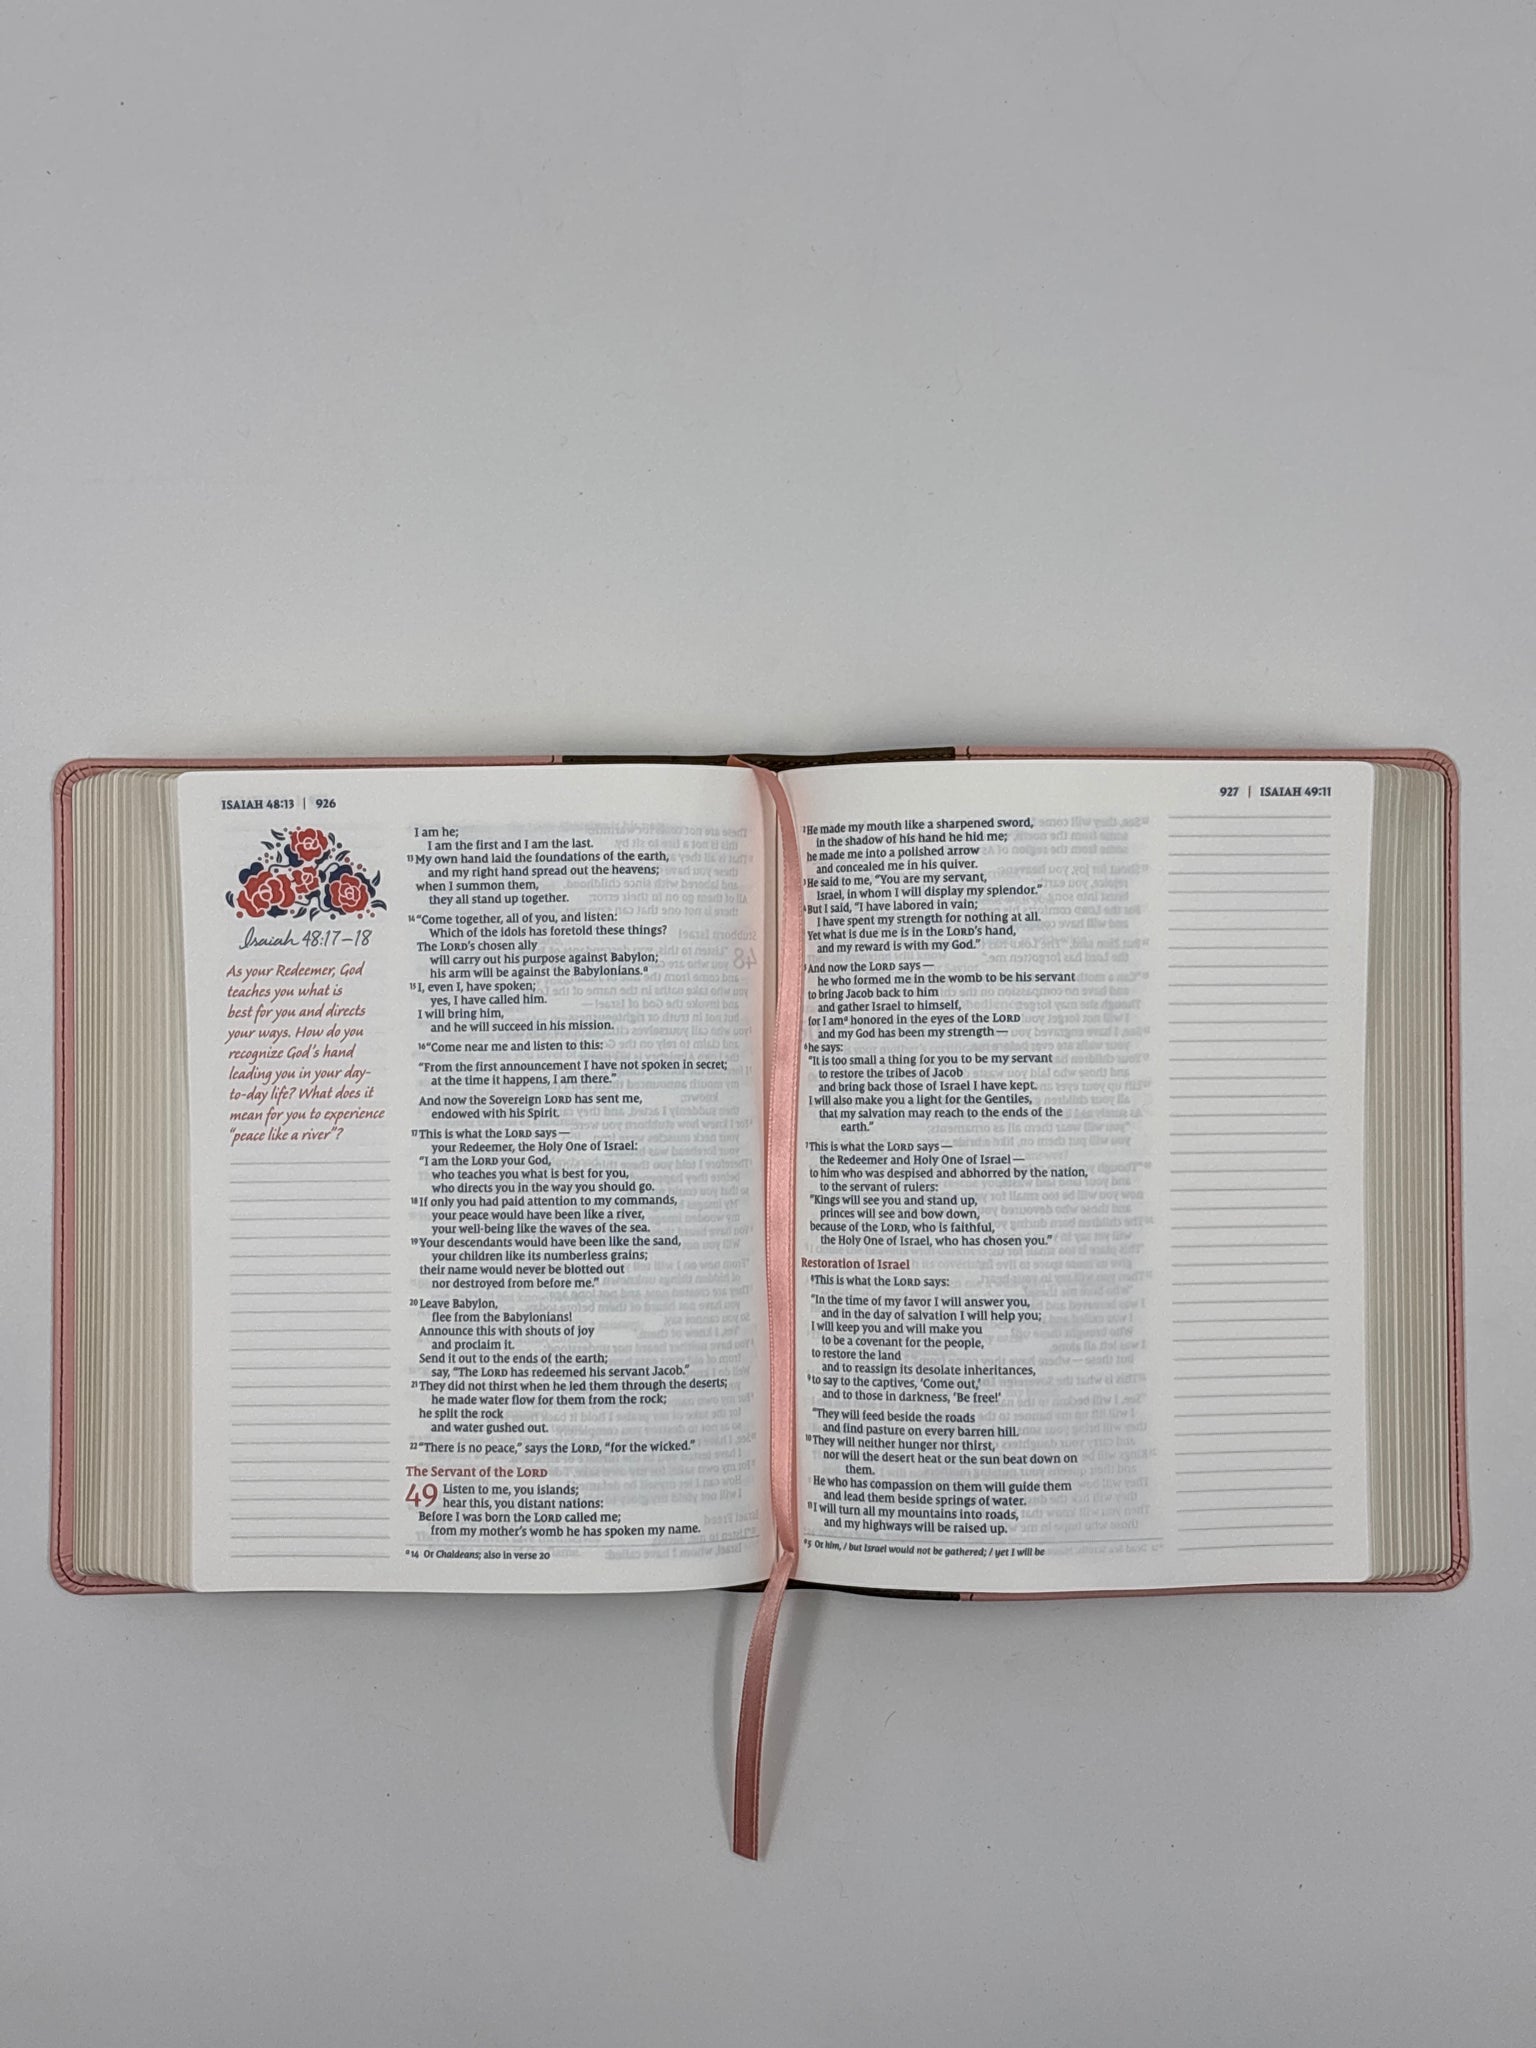 ISAIAH 48:13 | 926
Isaiah 48:17–18
As your Redeemer, God
teaches you what is
best for you and directs
your ways. How do you
recognize God's hand
leading you in your day-
to-day life? What does it
mean for you to experience
"peace like a river"?
I am he;
I am the first and I am the last.
13 My own hand laid the foundations of the earth,
and my right hand spread out the heavens;
when I summon them,
they all stand up together.
14 "Come together, all of you, and listen:
Which of the idols has foretold these things?
The LORD's chosen ally
will carry out his purpose against Babylon;
his arm will be against the Babylonians.a
15 I, even I, have spoken;
yes, I have called him.
I will bring him,
and he will succeed in his mission.
16 "Come near me and listen to this:
"From the first announcement I have not spoken in secret;
at the time it happens, I am there."
And now the Sovereign LORD has sent me,
endowed with his Spirit.
17 This is what the LORD says—
your Redeemer, the Holy One of Israel:
"I am the LORD your God,
who teaches you what is best for you,
who directs you in the way you should go.
18 If only you had paid attention to my commands,
your peace would have been like a river,
your well-being like the waves of the sea.
19 Your descendants would have been like the sand,
your children like its numberless grains;
their name would never be blotted out
nor destroyed from before me."
20 Leave Babylon,
flee from the Babylonians!
Announce this with shouts of joy
and proclaim it.
Send it out to the ends of the earth;
say, "The LORD has redeemed his servant Jacob."
21 They did not thirst when he led them through the deserts;
he made water flow for them from the rock;
he split the rock
and water gushed out.
22 "There is no peace," says the LORD, "for the wicked."
The Servant of the LORD
49 Listen to me, you islands;
hear this, you distant nations:
Before I was born the LORD called me;
from my mother's womb he has spoken my name.
a 14 Or Chaldeans; also in verse 20
927 | ISAIAH 49:11
2 He made my mouth like a sharpened sword,
in the shadow of his hand he hid me;
he made me into a polished arrow
and concealed me in his quiver.
3 He said to me, "You are my servant,
Israel, in whom I will display my splendor."
4 But I said, "I have labored in vain;
I have spent my strength for nothing at all.
Yet what is due me is in the LORD's hand,
and my reward is with my God."
5 And now the LORD says—
he who formed me in the womb to be his servant
to bring Jacob back to him
and gather Israel to himself,
for I am a honored in the eyes of the LORD
and my God has been my strength—
6 he says:
"It is too small a thing for you to be my servant
to restore the tribes of Jacob
and bring back those of Israel I have kept.
I will also make you a light for the Gentiles,
that my salvation may reach to the ends of the
earth."
7 This is what the LORD says—
the Redeemer and Holy One of Israel—
to him who was despised and abhorred by the nation,
to the servant of rulers:
"Kings will see you and stand up,
princes will see and bow down,
because of the LORD, who is faithful,
the Holy One of Israel, who has chosen you."
Restoration of Israel
8 This is what the LORD says:
"In the time of my favor I will answer you,
and in the day of salvation I will help you;
I will keep you and will make you
to be a covenant for the people,
to restore the land
and to reassign its desolate inheritances,
9 to say to the captives, 'Come out,'
and to those in darkness, 'Be free!'
"They will feed beside the roads
and find pasture on every barren hill.
10 They will neither hunger nor thirst,
nor will the desert heat or the sun beat down on
them.
He who has compassion on them will guide them
and lead them beside springs of water.
11 I will turn all my mountains into roads,
and my highways will be raised up.
a 5 Or him, / but Israel would not be gathered; / yet I will be